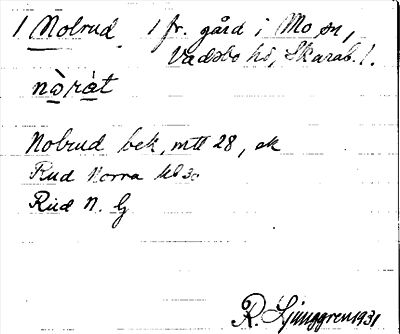 1 Nolrud 1 fr. gård i Mo sn,
Vadsbo hd, Skarab. l.
nòràt
Nolrud bek, mtl 28, ek
Rud Norra
Rud N. G
R. Ljunggren 1931